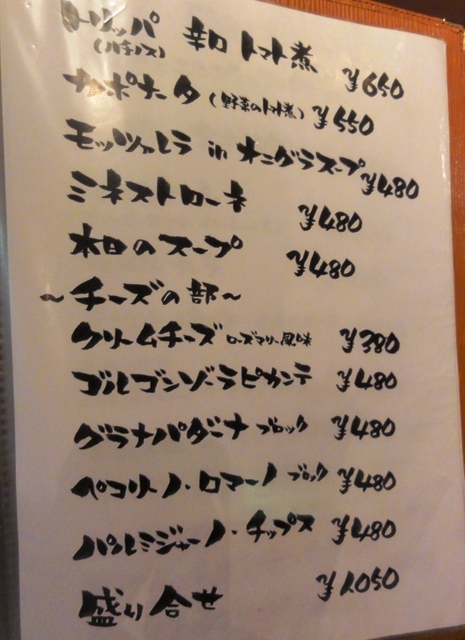 トリッパ (ハチノス) 辛口 トマト煮 ¥650
カポナータ (野菜のトマト煮) ¥550
モッツァレラ in オニグラスープ ¥480
ミネストローネ ¥480
本日のスープ ¥480
～チーズの部～
クリームチーズ ローズマリー風味 ¥380
ゴルゴンゾーラピカンテ ¥480
グラナパダーナ ブロック ¥480
ペコリーノ・ロマーノ ブロック ¥480
パルミジャーノ・チップス ¥480
盛り合せ ¥1,050